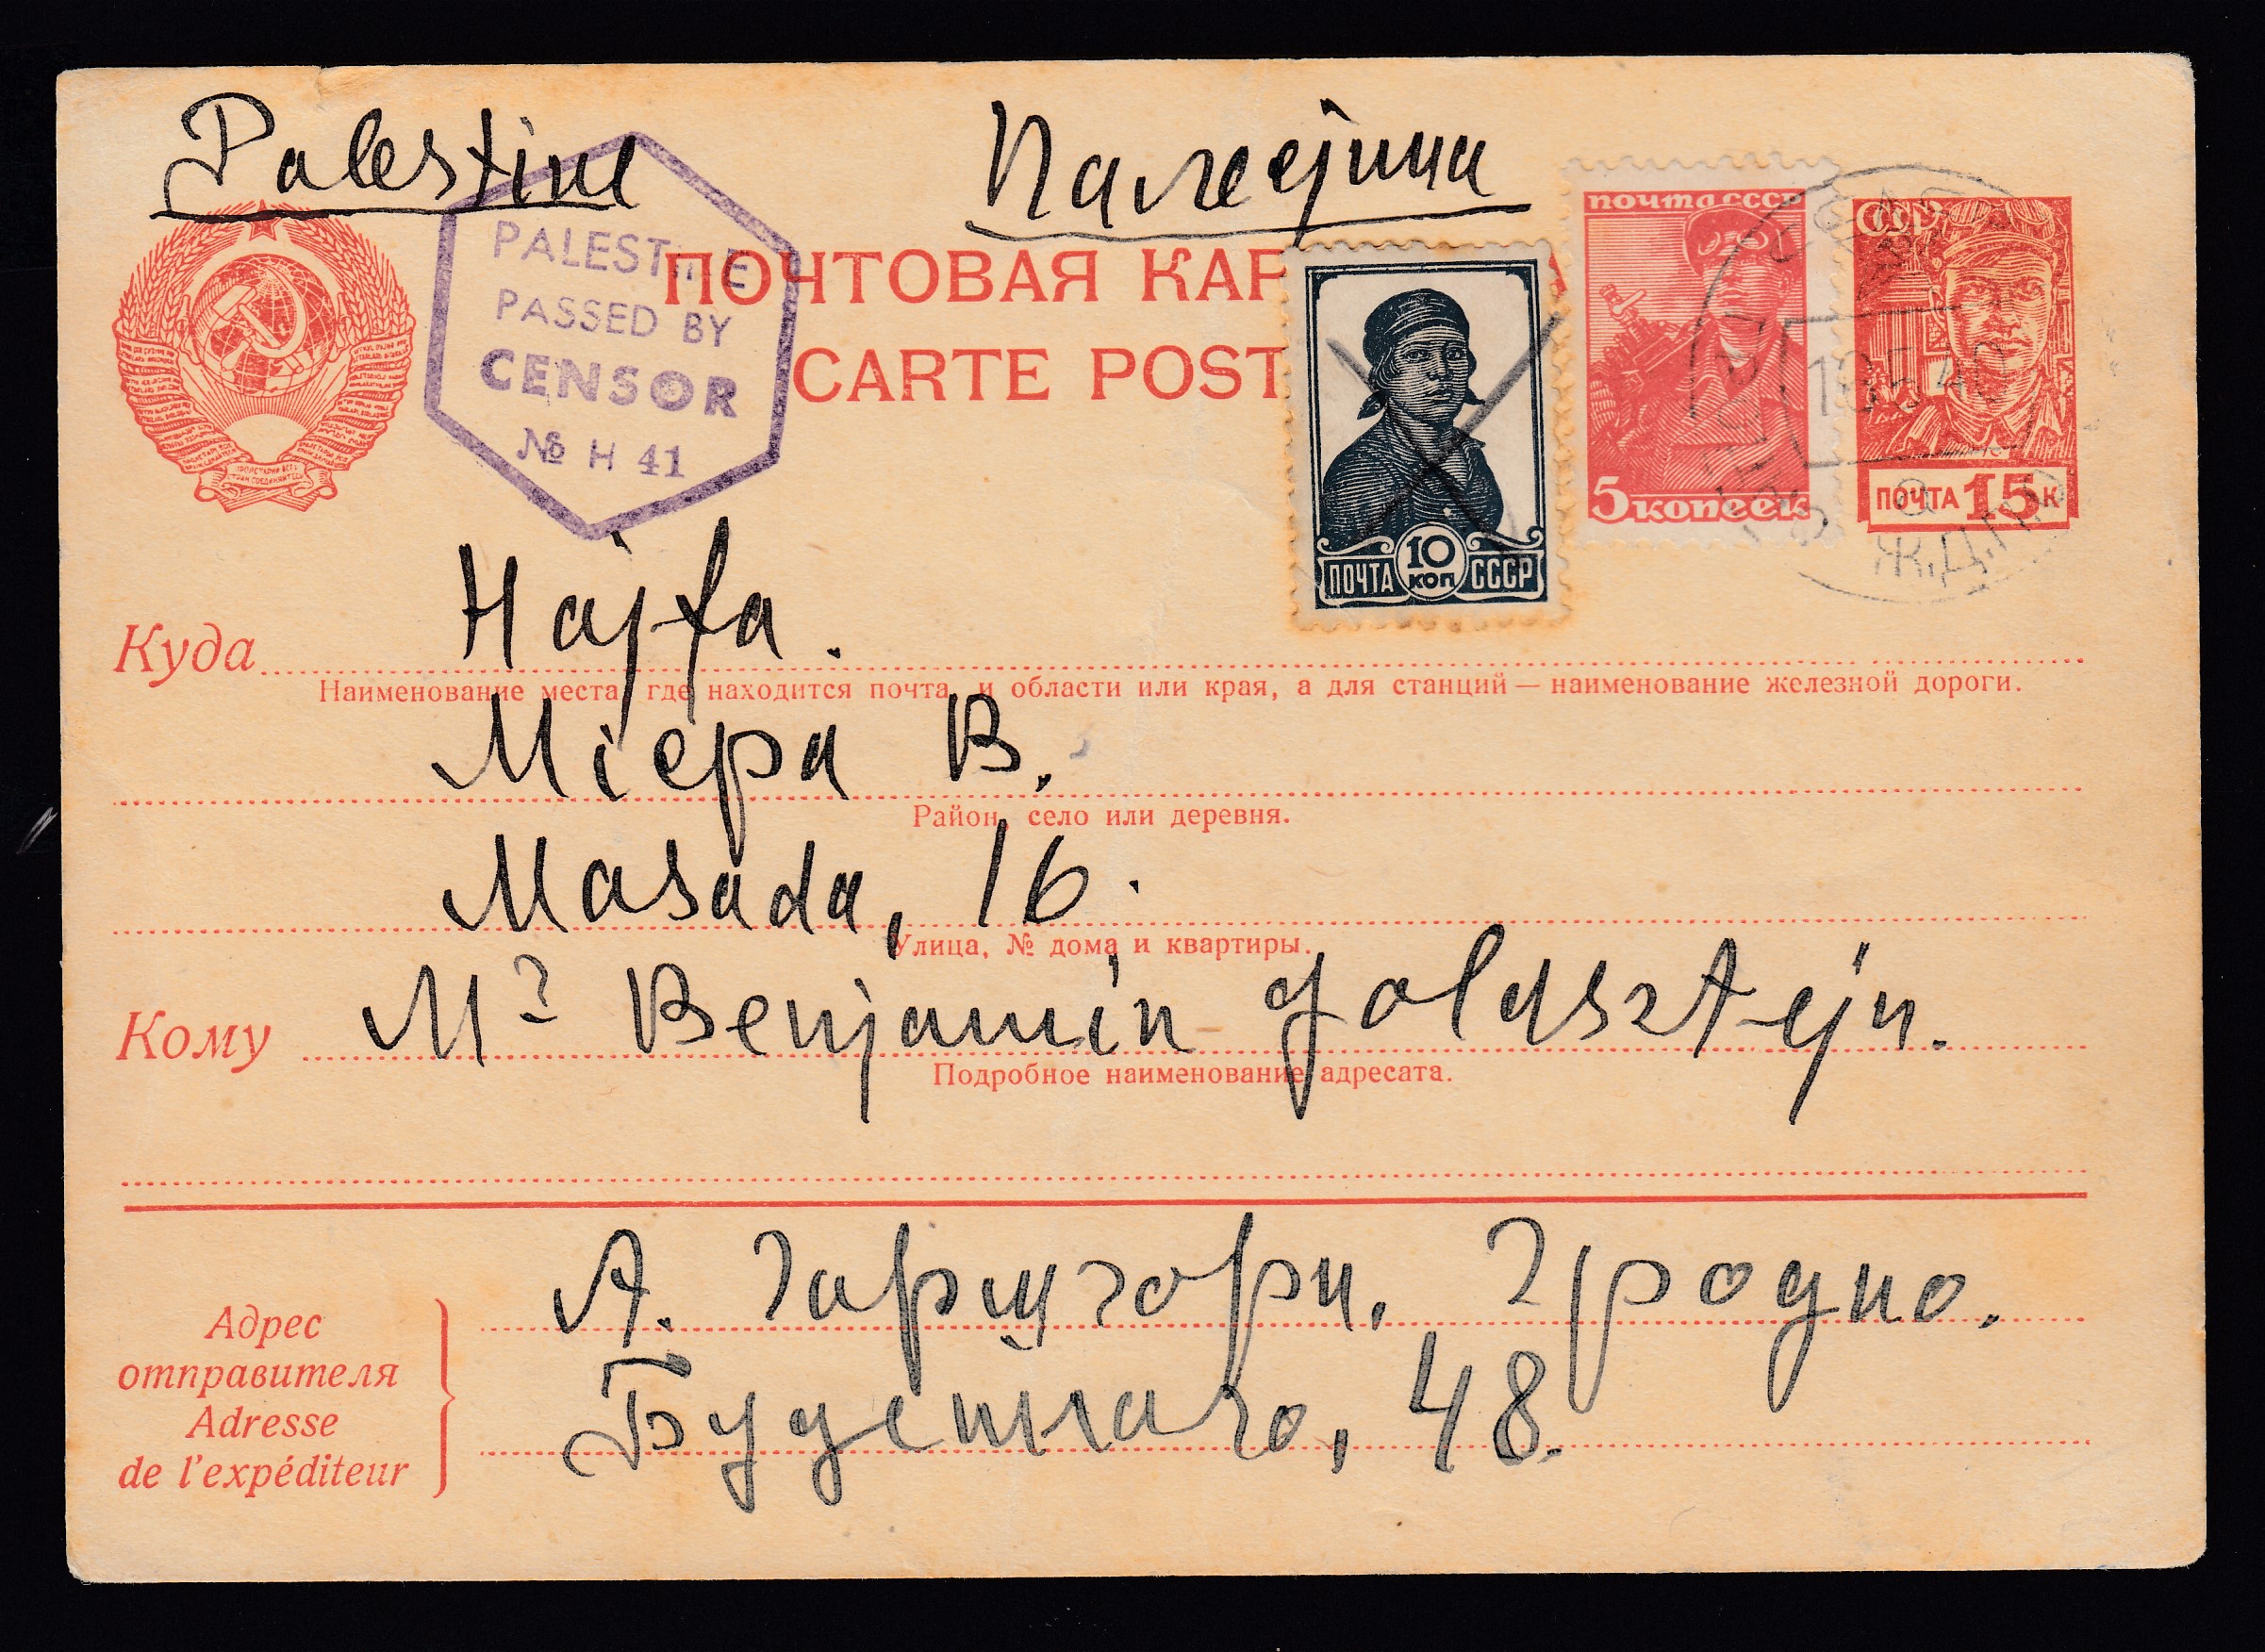 Palestine Палестина
PALESTINE
PASSED BY
CENSOR
№ H 41
ПОЧТОВАЯ КАР
CARTE POST
ПОЧТА 10 КОП СССР
ПОЧТА СССР
5 КОПЕЕК
СССР
ПОЧТА 15 К
19 5 40
а
Куда Hajfa.
Наименование места, где находится почта, и области или края, а для станций — наименование железной дороги.
B.
Район, село или деревня.
Masada, 16.
Улица, № дома и квартиры.
Кому Mr Benjamin Goldsztejn.
Подробное наименование адресата.
Адрес
отправителя
Adresse
de l'expéditeur
А. Гродно.
48.